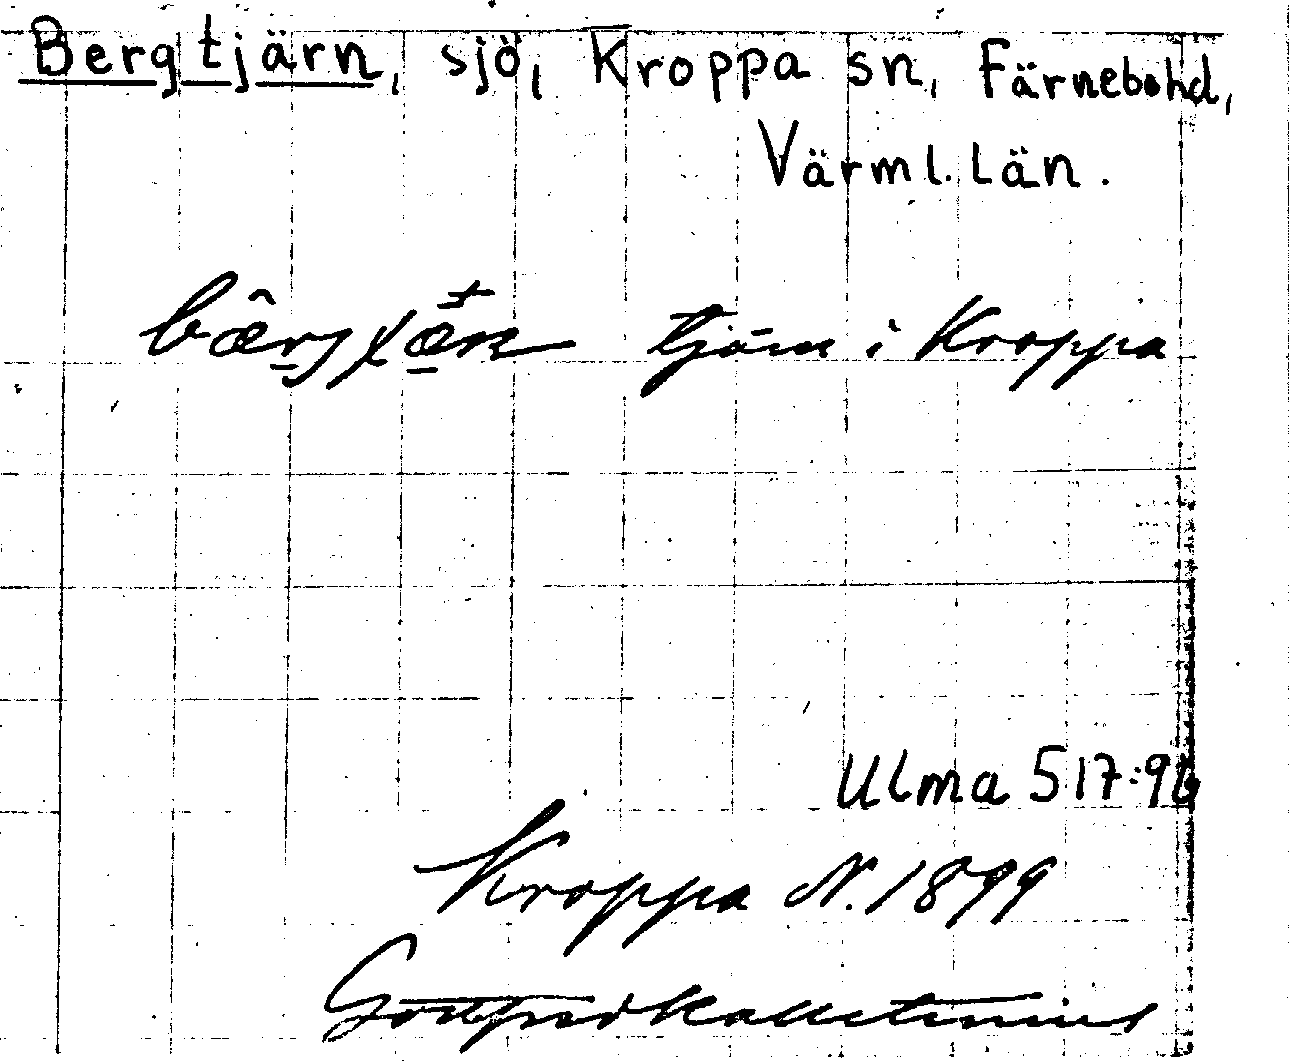 Bergtjärn, sjö, Kroppa sn, Färnebohd,
Värml. län.
tjärn i Kroppa
Ulma 517:96
Kroppa N. 1899
Gottfrid Kallstenius